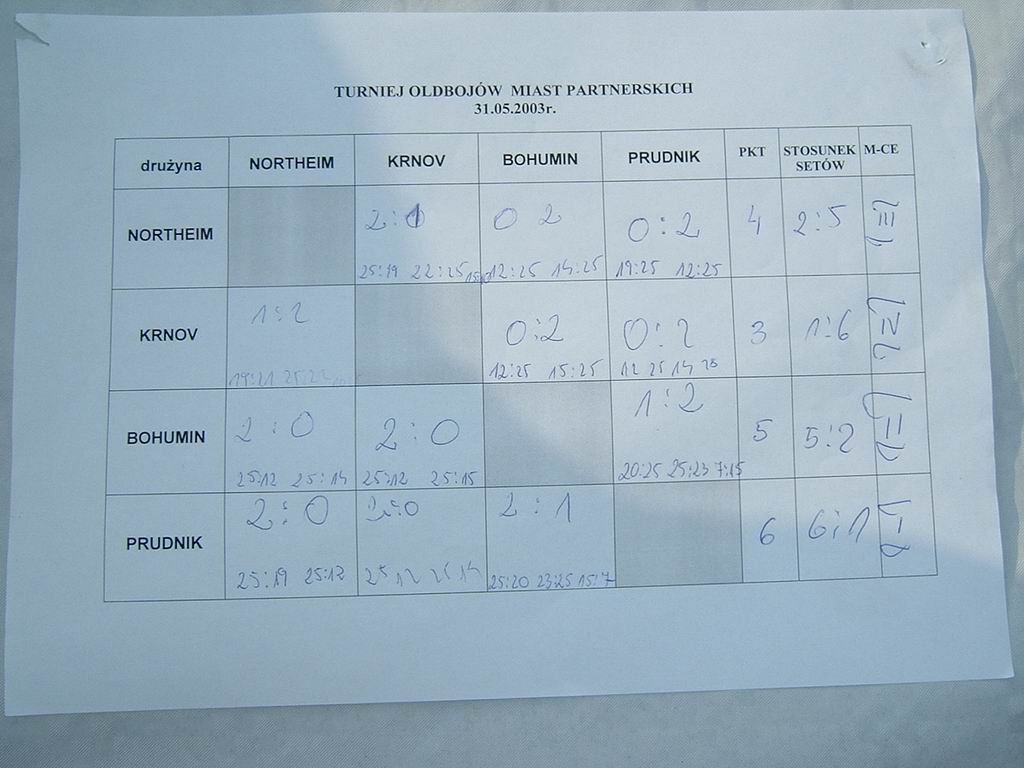 TURNIEJ OLDBOJÓW MIAST PARTNERSKICH
31.05.2003r.
drużyna NORTHEIM KRNOV BOHUMIN PRUDNIK PKT STOSUNEK SETÓW M-CE
NORTHEIM 2:1 0 2 0:2 4 2:5 III
25:19 22:25 12:25 14:25 19:25 12:25
KRNOV 1:2 0:2 0:2 3 1:6 IV
12:25 15:25 12 25 14 25
BOHUMIN 2:0 2:0 1:2 5 5:2 II
25:12 25:14 25:12 25:15 20:25 25:23 7:15
PRUDNIK 2:0 2:0 2:1 6 6:1 I
25:19 25:12 25 12 25 14 25:20 23:25 15:7